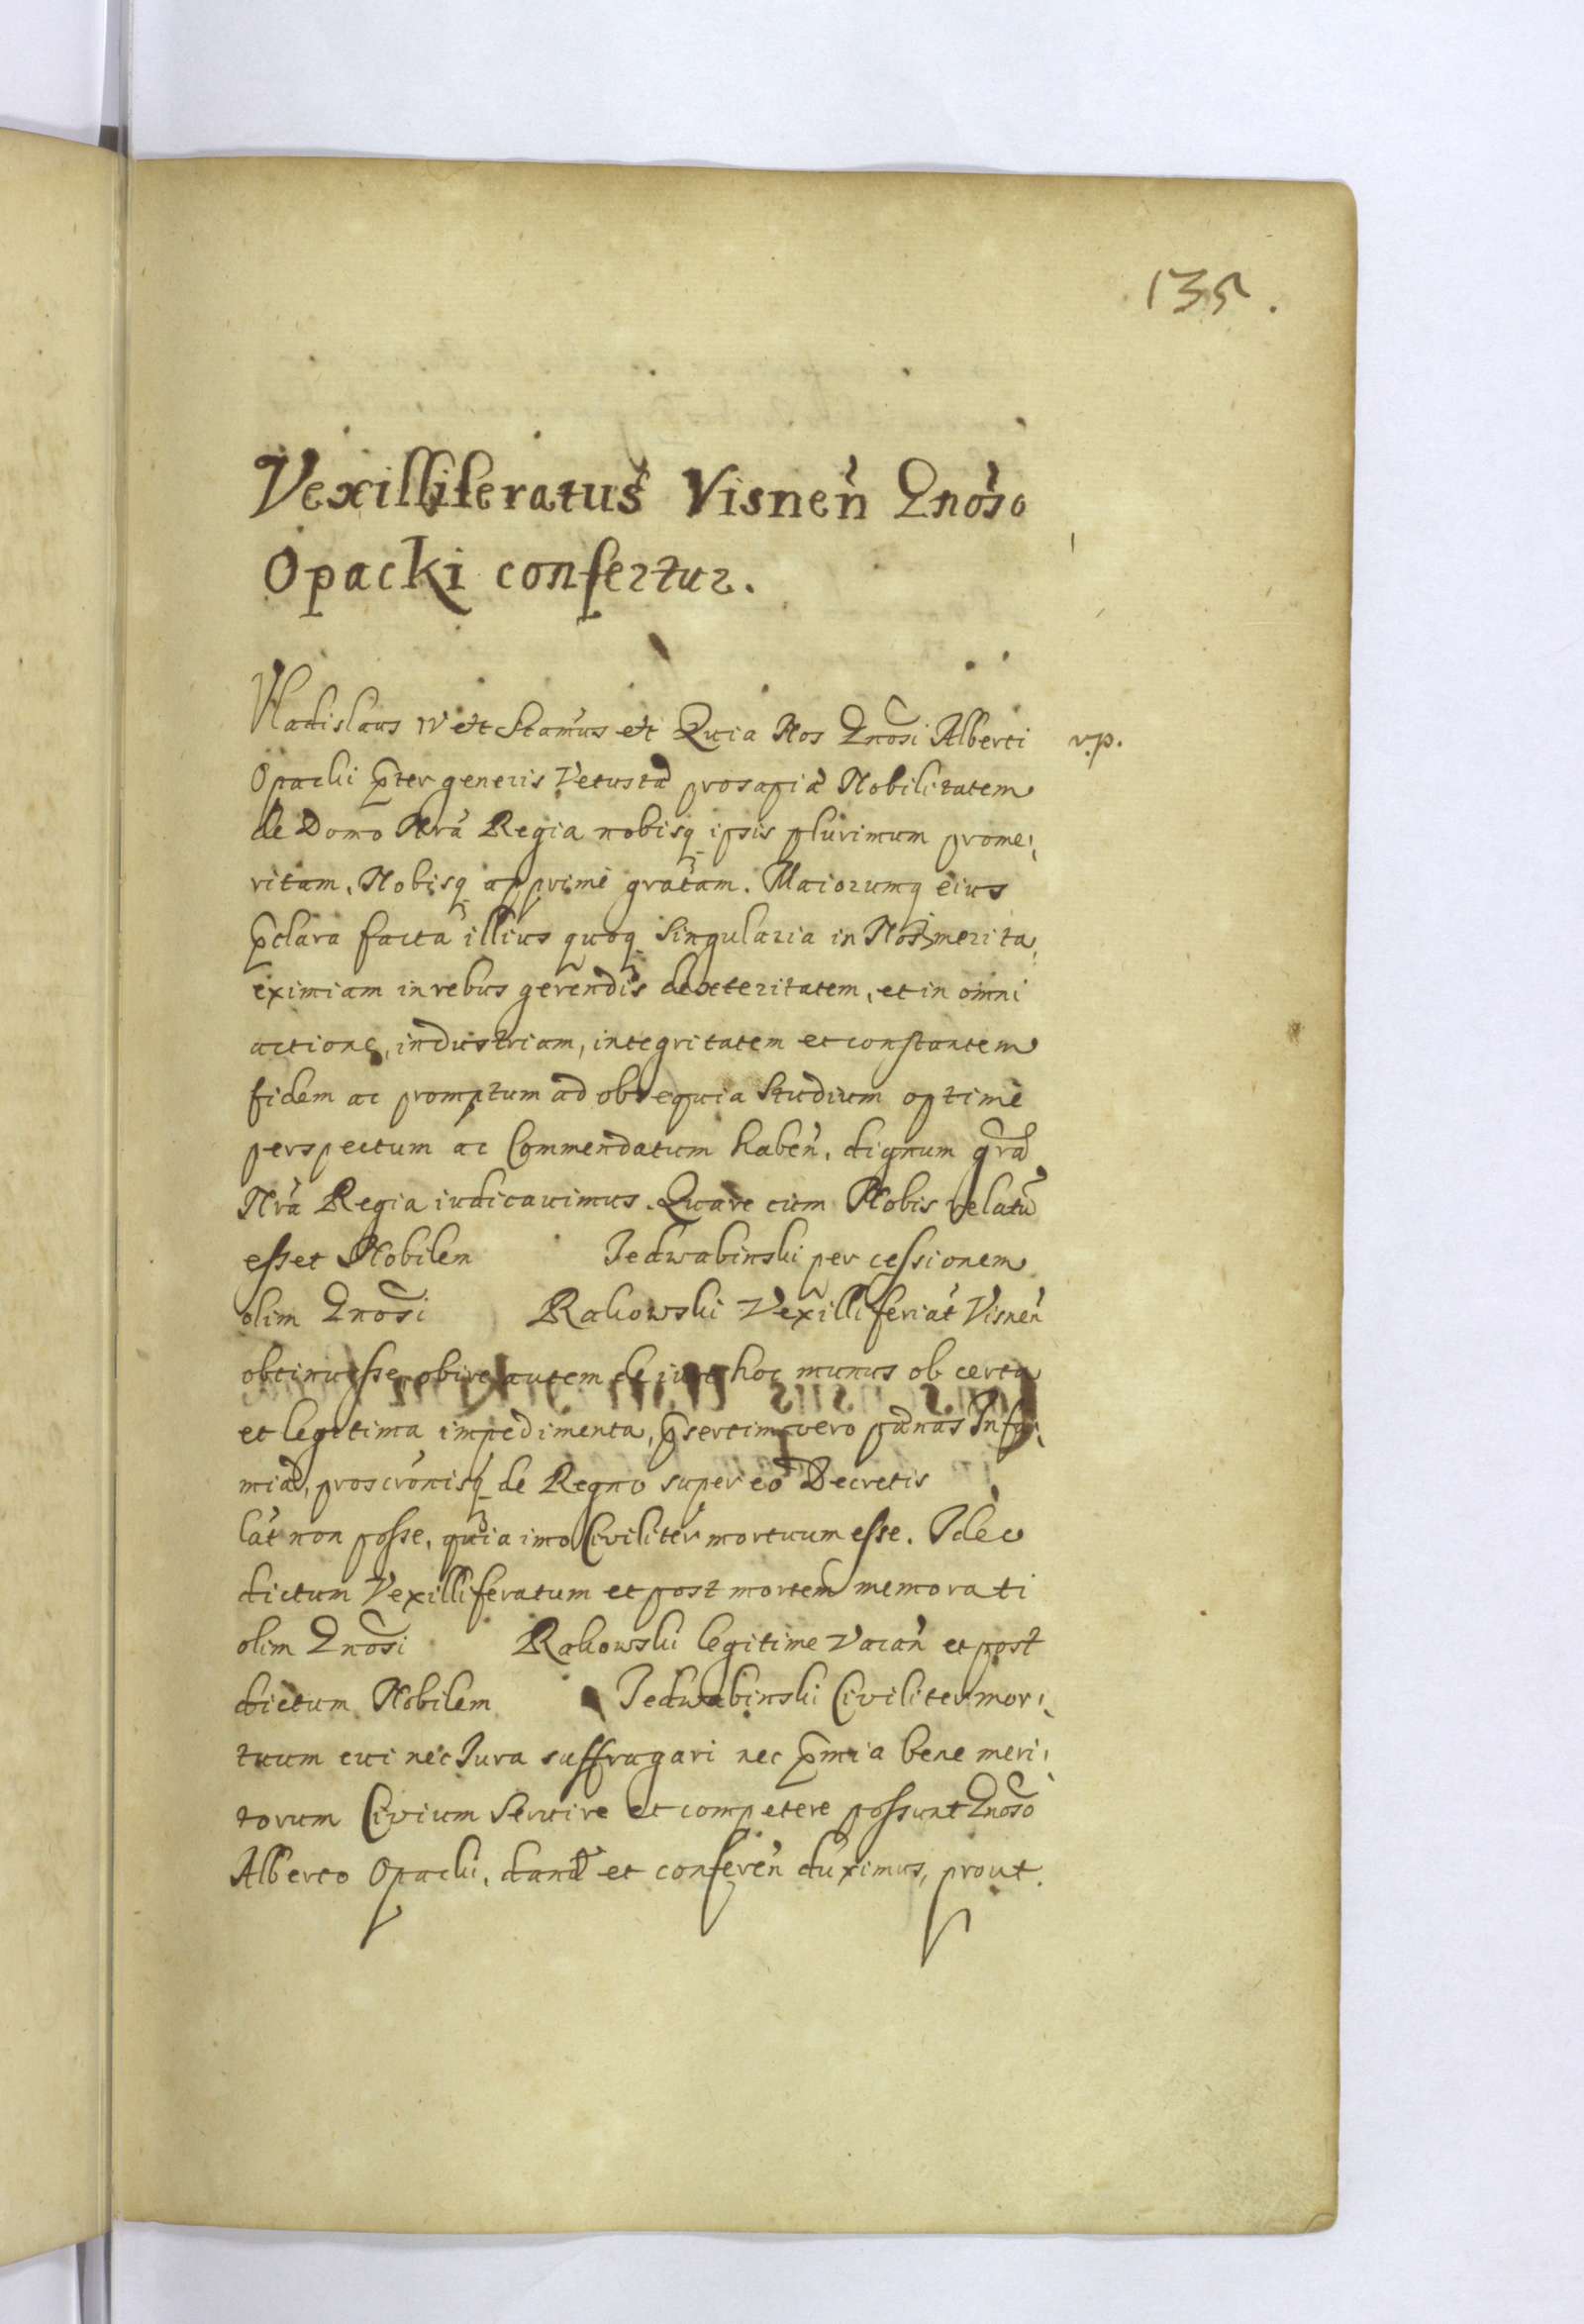 135.
Vexilliferatus Visnen̄ Gnoso
Opacki confertur.
Vladislaus IV etc Stamus etc Quia Nos Gnosi Alberti
v.p.
Opacki p̄ter generis Vetustā prosapiā Nobilitatem
de Domo Nrā Regia nobisq ipsis plurimum prome,
ritam, Nobisq apprimè gratam. Maiorumq eius
p̄clara facta illius quoq singularia in Nos merita,
eximiam in rebus gerendis dexteritatem, et in omni
actione, industriam, integritatem et constantem
fidem ac promptum ad obsequia Studium optimè
perspectum ac Commendatum haben̄, dignum grā
Nrā Regia iudicauimus. Quare cum Nobis relatū
esset Nobilem Jedwabinski per cessionem
olim Gnosi Rakowski Vexilliferiat Visnen̄
obtinuisse, obire autem de iure hoc munus ob certa
et legitima impedimenta, p̄sertim vero pænas Infa,
miæ, proscrōnisq de Regno super eo Decretis
lat non posse, quia imo Civiliter mortuum esse. Ideo
dictum Vexilliferatum et post mortem memorati
olim Gnosi Rakowski legitime Vacan̄ et post
dictum Nobilem Jedwabinski Civiliter mor,
tuum cui nec Jura suffragari nec p̄mia bene meri,
torum Civium Seruire et competere possunt Gnoso
Alberto Opacki, dand et conferen̄ duximus, prout